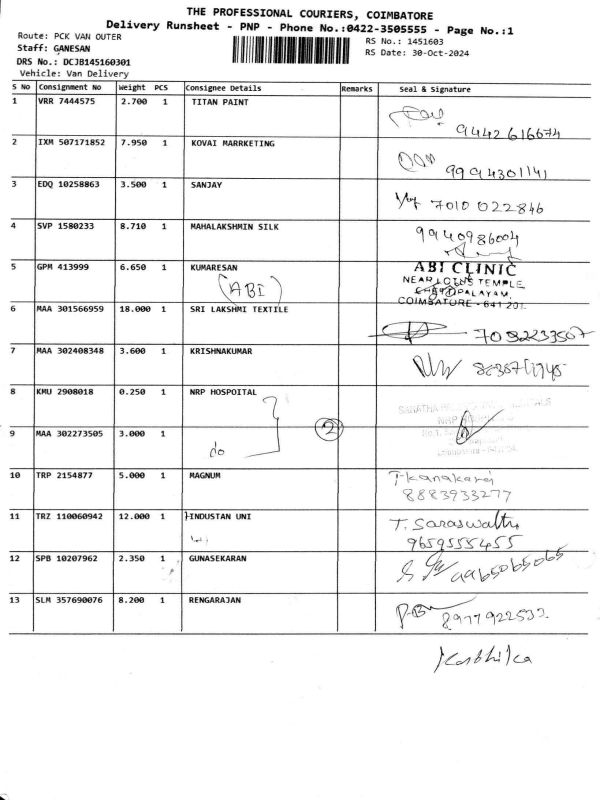 THE PROFESSIONAL COURIERS, COIMBATORE
Delivery Runsheet - PNP - Phone No.:0422-3505555 - Page No.:1
Route: PCK VAN OUTER
RS No.: 1451603
Staff: GANESAN
RS Date: 30-Oct-2024
DRS No.: DCJB145160301
Vehicle: Van Delivery
S No Consignment No Weight PCS Consignee Details Remarks Seal & Signature
1 VRR 7444575 2.700 1 TITAN PAINT
9442616674
2 IXM 507171852 7.950 1 KOVAI MARRKETING
9994301141
3 EDQ 10258863 3.500 1 SANJAY
7010 022846
4 SVP 1580233 8.710 1 MAHALAKSHMIN SILK
9940986004
5 GPM 413999 6.650 1 KUMARESAN
(ABI)
ABI CLINIC
NEAR LOTUS TEMPLE,
COIMBATORE - 641 201.
6 MAA 301566959 18.000 1 SRI LAKSHMI TEXTILE
7 MAA 302408348 3.600 1 KRISHNAKUMAR
8 KMU 2908018 0.250 1 NRP HOSPOITAL
2
9 MAA 302273505 3.000 1
do
10 TRP 2154877 5.000 1 MAGNUM
T kanakaraj
8883933277
11 TRZ 110060942 12.000 1 HINDUSTAN UNI
T. Saraswathi
9659555455
12 SPB 10207962 2.350 1 GUNASEKARAN
9965065065
13 SLM 357690076 8.200 1 RENGARAJAN